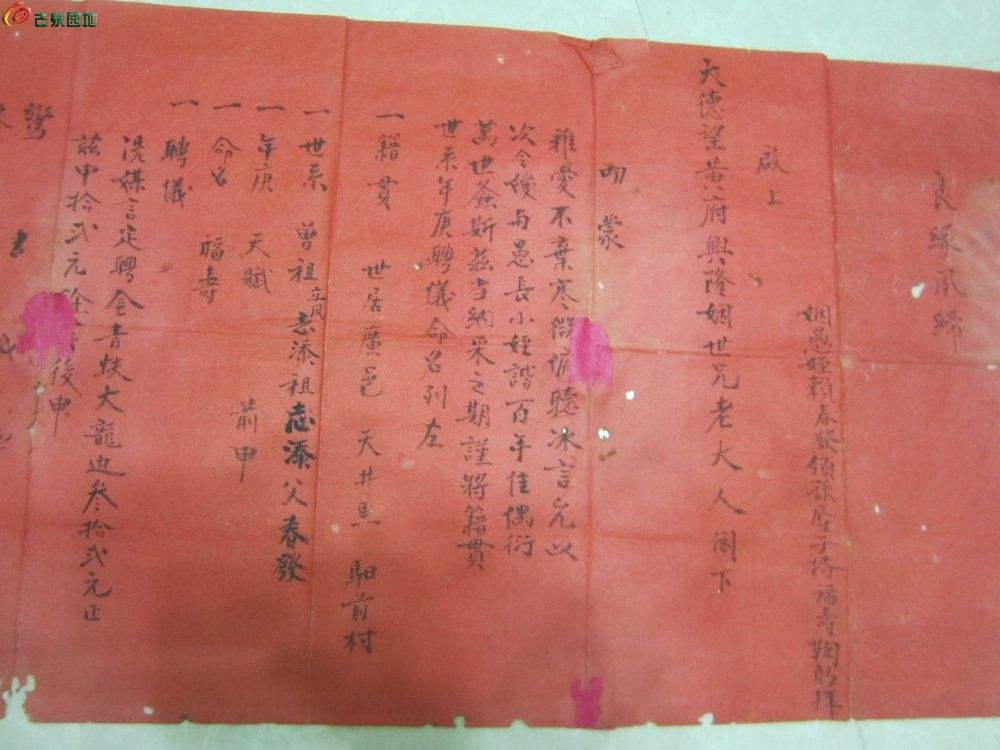 古泉园地
良緣夙締
姻愚姪賴春發領 辱子 福壽鞠躬拜
大德望黃府興隆姻世兄老大人閣下
啟上
叨蒙
雅愛不棄寒微 聽冰言允以
次令嬡與愚長小姪諧百年佳偶衍
萬世螽斯茲當納采之期謹將籍貫
世系年庚聘儀命名列左
一籍貫 世居廣邑 天井 前村
一世系 曾祖立凤志添祖志添父春發
一年庚 天賦 前申
一命名 福壽
一聘儀
凴媒言定聘金青蚨大龍 叁拾弍元正
茲申拾弍元餘 後申
鸞書